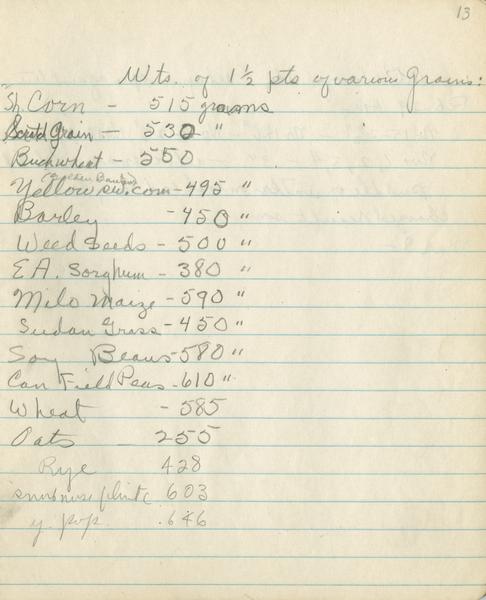 13
Wts. of 1 1/2 pts of various Grains:
Sh. Corn - 515 grams
Scratch Grain - 530 "
Buckwheat - 550
(Golden Bantam)
Yellow sw. corn - 495 "
Barley - 450 "
Weed Seeds - 500 "
E.A. Sorghum - 380 "
Milo Maize - 590 "
Sudan Grass - 450 "
Soy Beans - 580 "
Can Field Peas - 610 "
Wheat - 585
Oats - 255
Rye 428
603
y. pop. 646